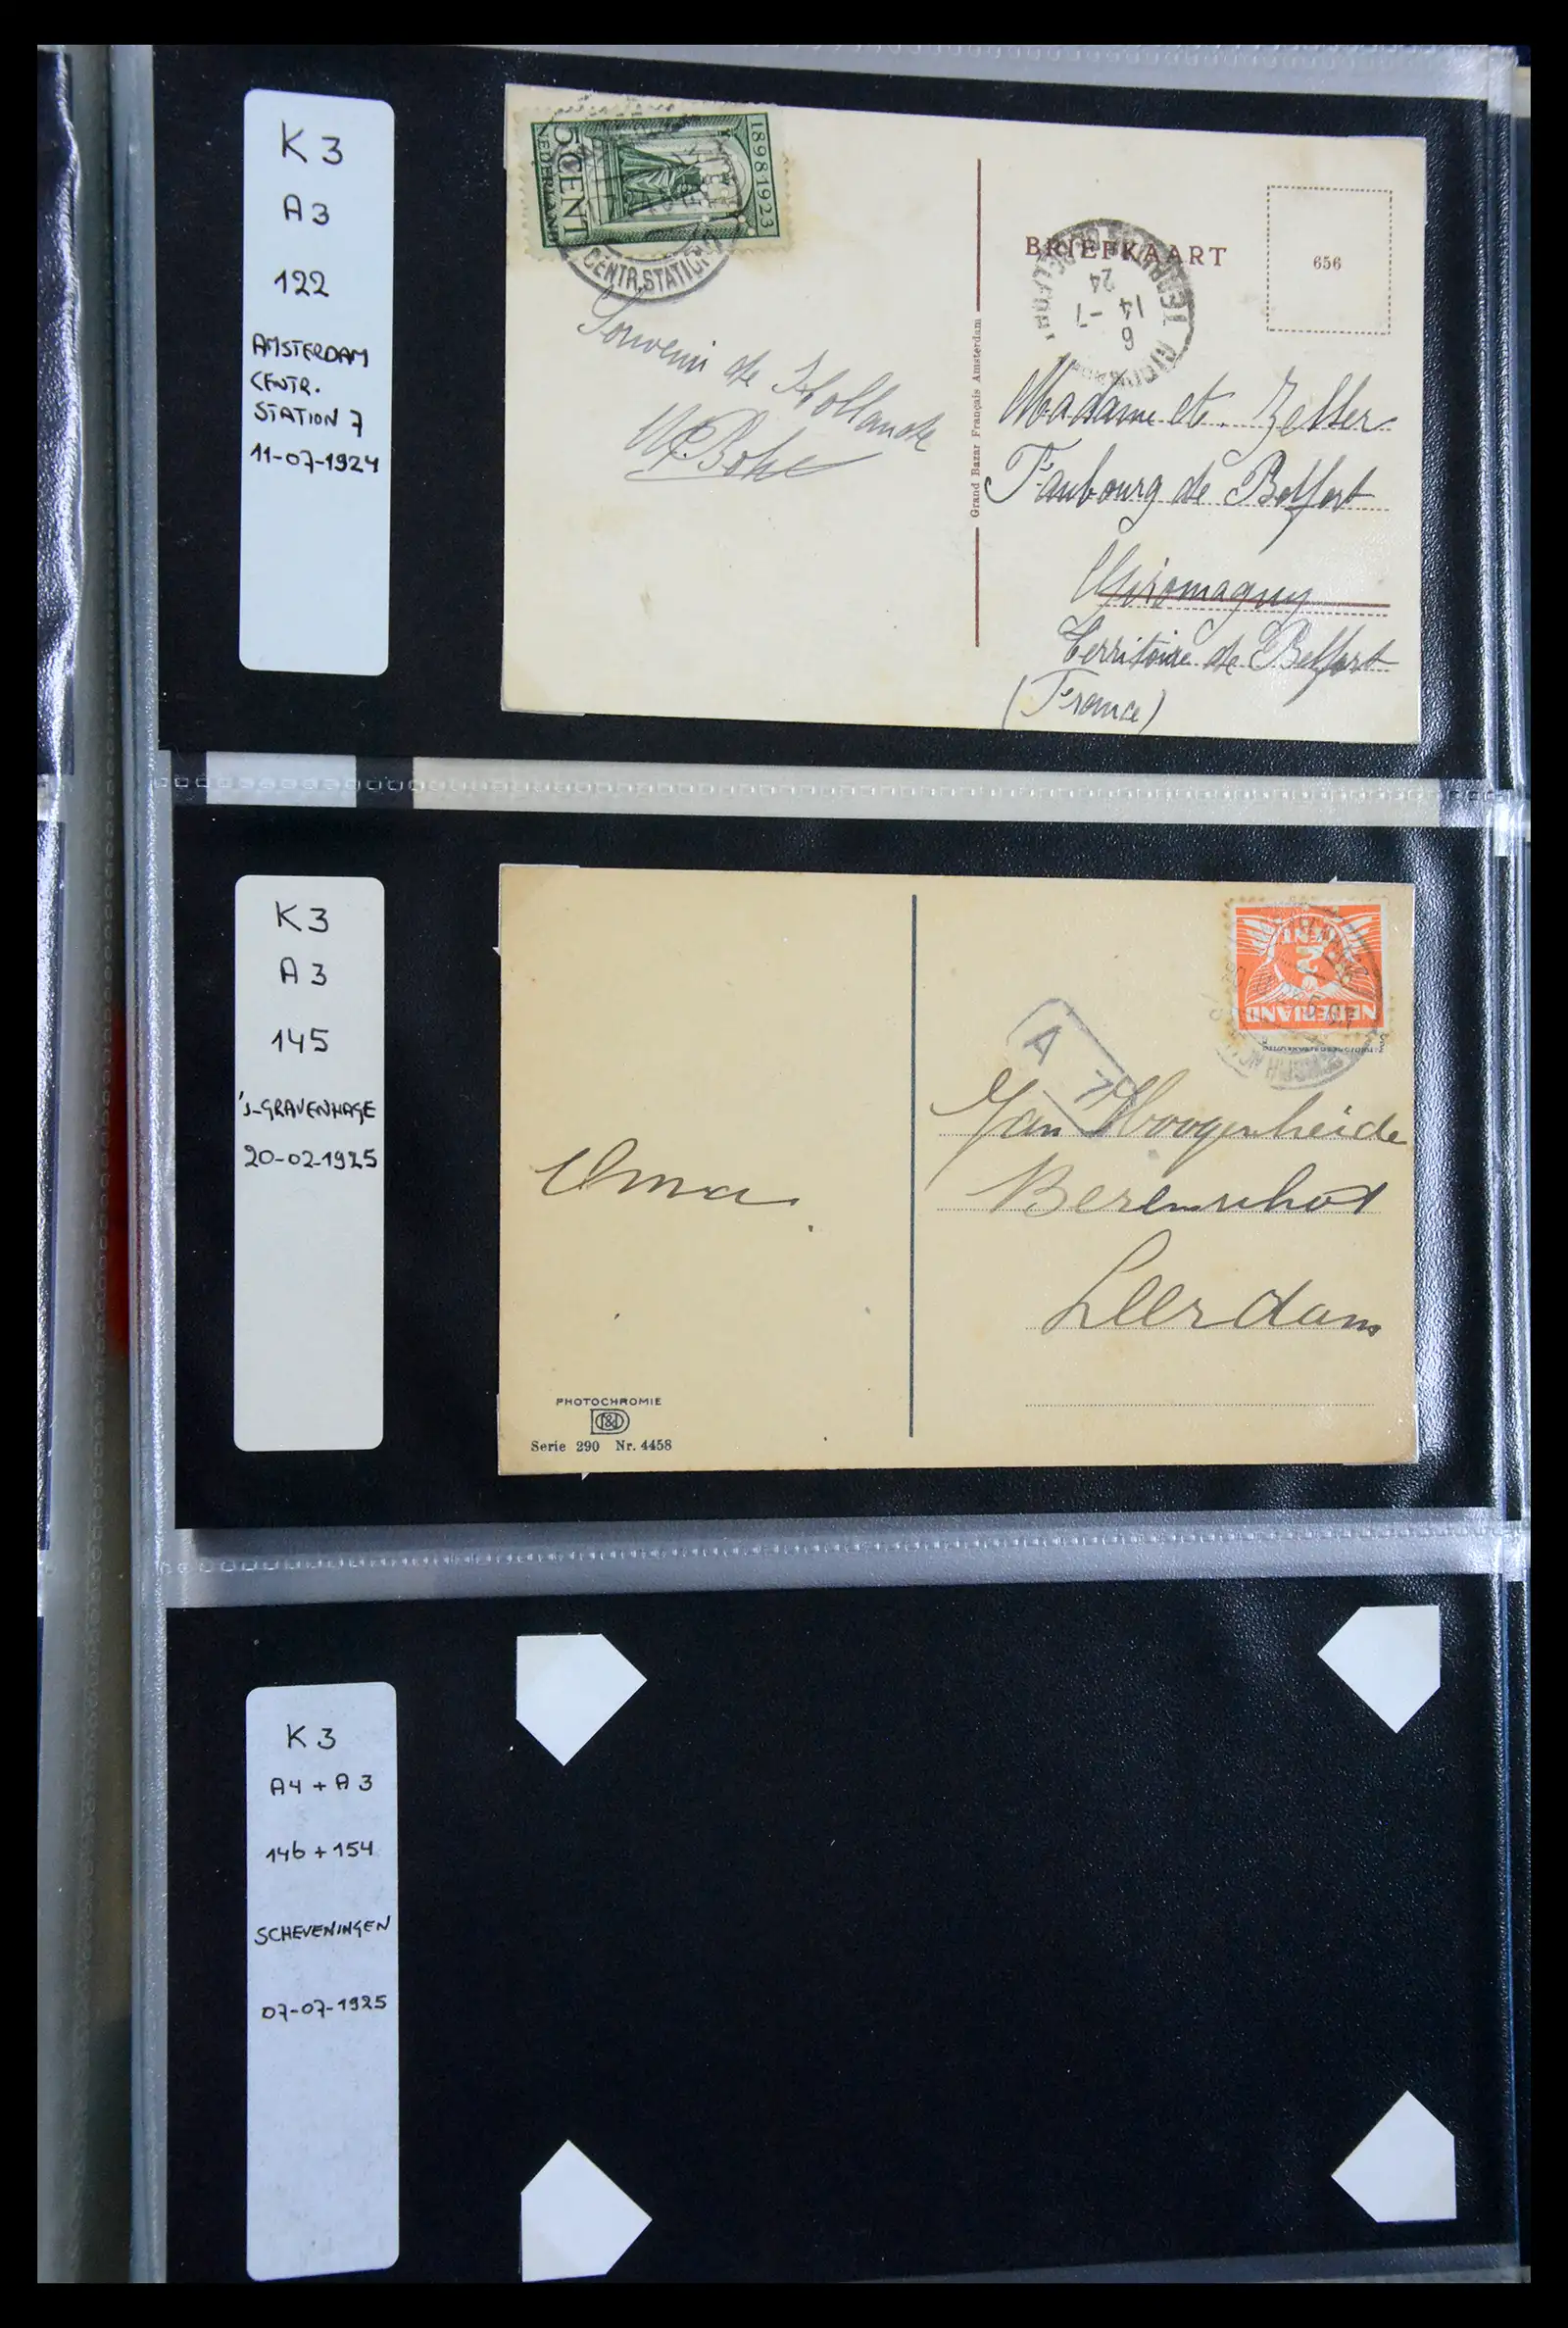 K3
A3
122
AMSTERDAM
CENTR.
STATION 7
11-07-1924
1898 1923
5 CENT
NEDERLAND
CENTR. STATION
Souvenir de Hollande
BRIEFKAART
656
24
14 -7
6
GIROMAGNY
Grand Bazar Français Amsterdam
Madame et. Zeller
Faubourg de Belfort
Giromagny
Territoire de Belfort
(France)
K3
A3
145
's-GRAVENHAGE
20-02-1925
CENT
NEDERLAND
A
7
Jan Hoogenheide
Leerdam
Oma.
PHOTOCHROMIE
D&D
Serie 290 Nr. 4458
K3
A4 + A3
146 + 154
SCHEVENINGEN
07-07-1925